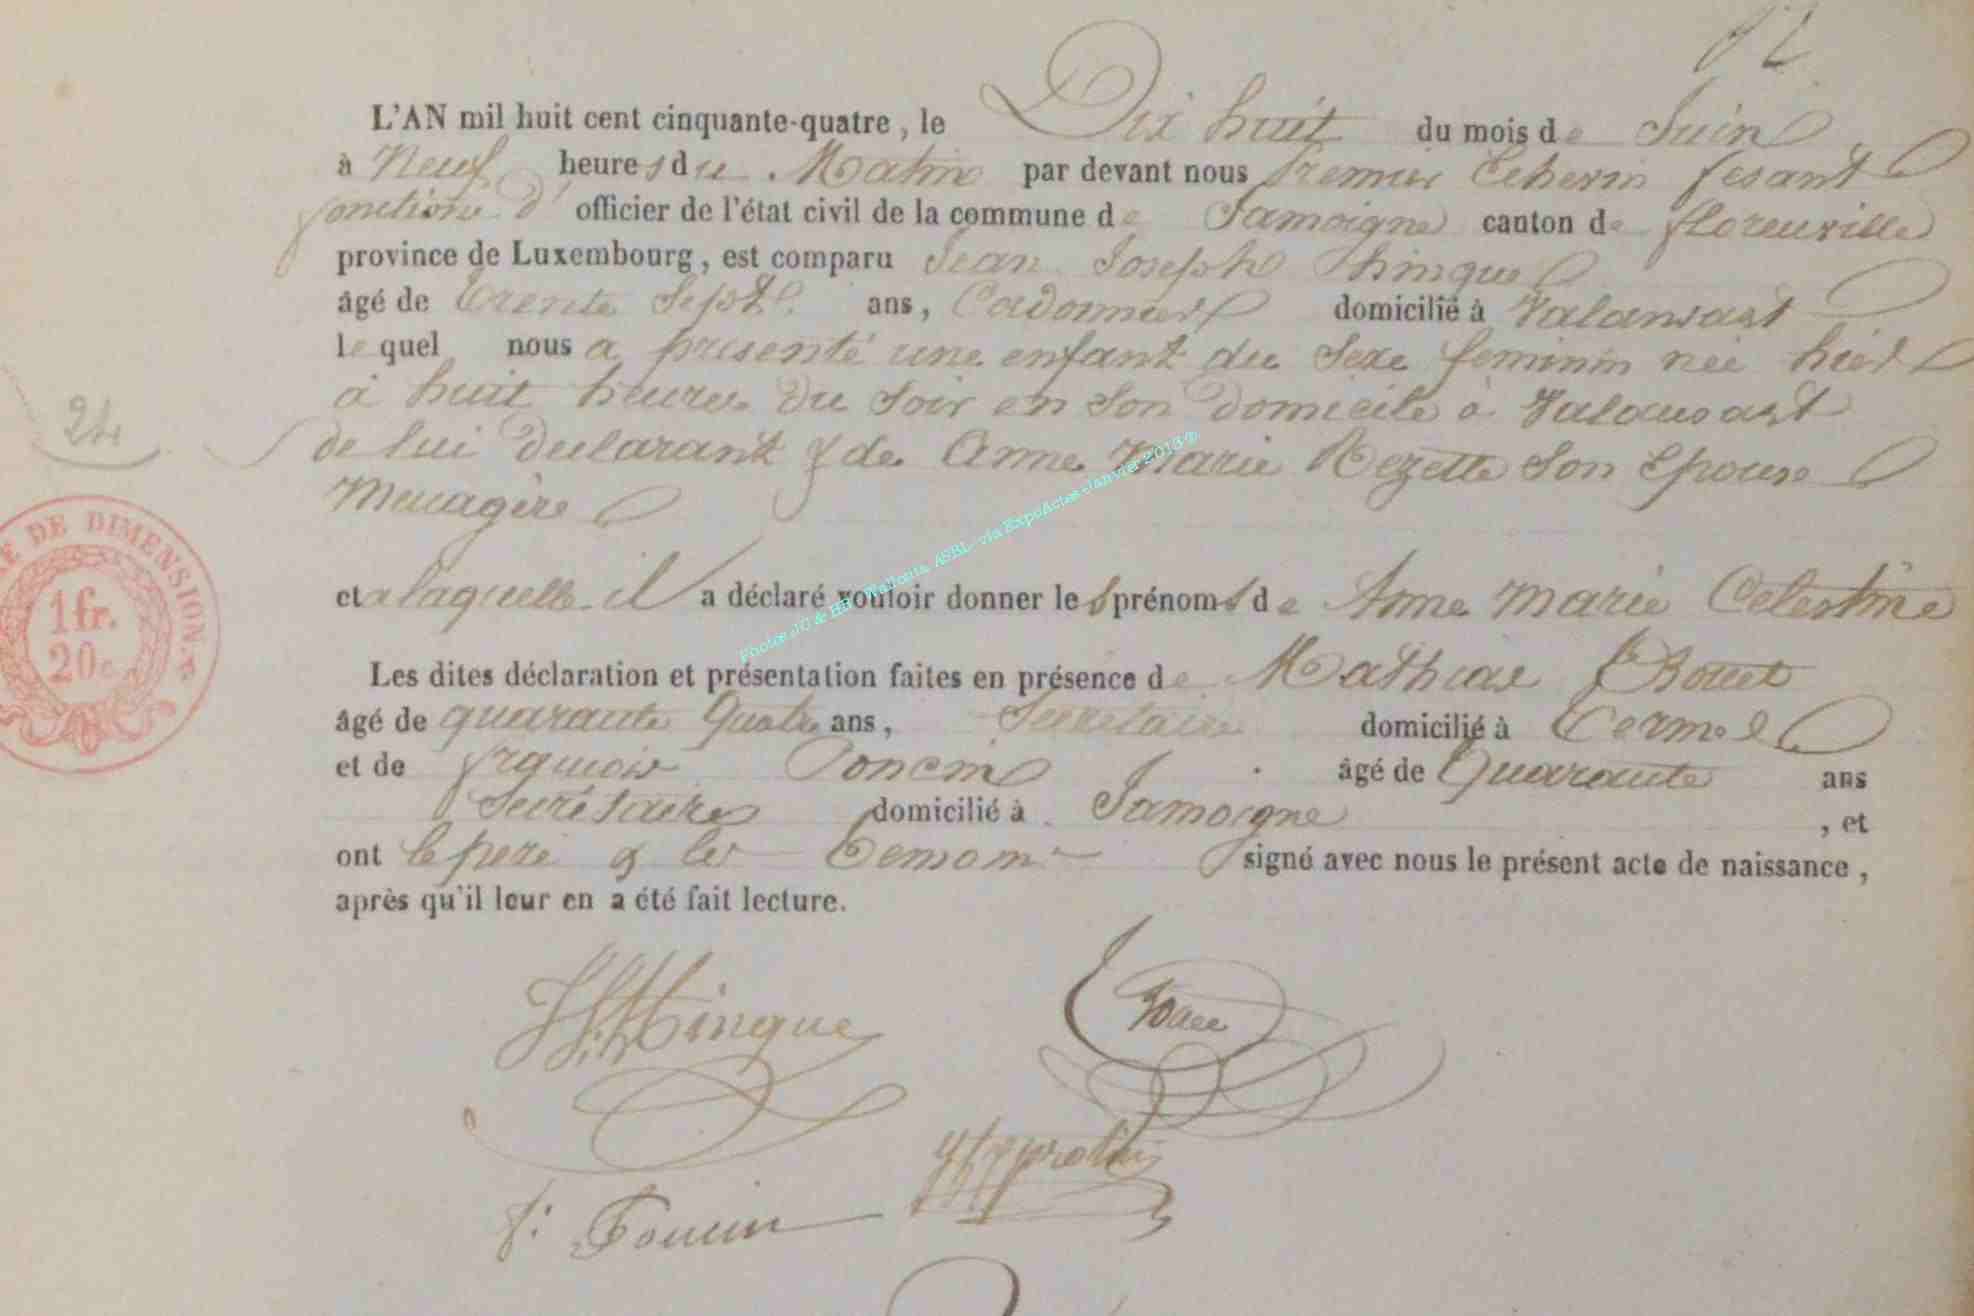 12
L'AN mil huit cent cinquante-quatre, le Dix huit du mois de Juin
à Neuf heures du Matin par devant nous Premier Echevin fesant
fonctions d' officier de l'état civil de la commune de Jamoigne canton de florenville
province de Luxembourg, est comparu Jean Joseph Thinque
âgé de trente Sept ans, Cordonnier domicilié à Valansart
le quel nous a presenté une enfant du Sexe feminin née hier
à huit heures du Soir en Son domicile à Valansart
de lui declarant & de Anne Marie Rezette Son Epouse
Menagère
24
TIMBRE DE DIMENSION.
1 fr.
20 c
et a laquelle il a déclaré vouloir donner les prénoms de Anne Marie Celestine
Les dites déclaration et présentation faites en présence de Mathias
âgé de quarante Quatre ans, Secretaire domicilié à Termes
et de françois Poncin âgé de Quarante ans
Secrétaire domicilié à Jamoigne , et
ont le pere & les Temoins signé avec nous le présent acte de naissance,
après qu'il leur en a été fait lecture.
JJ Thinque
f: Poncin
Photos JC & HB Wallonia, ASBL - via ExpoActes - Janvier 2016 ®